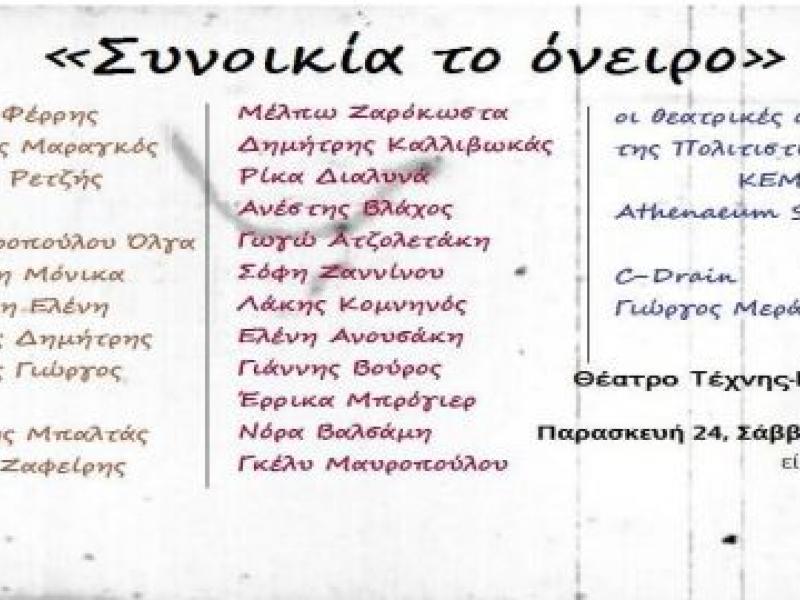 «Συνοικία το όνειρο»
Φέρρης
ς Μαραγκός
Ρετζής
ροπούλου Όλγα
η Μόνικα
η Ελένη
ς Δημήτρης
ς Γιώργος
ης Μπαλτάς
Ζαφείρης
Μέλπω Ζαρόκωστα
Δημήτρης Καλλιβωκάς
Ρίκα Διαλυνά
Ανέστης Βλάχος
Γωγώ Ατζολετάκη
Σόφη Ζαννίνου
Λάκης Κομνηνός
Ελένη Ανουσάκη
Γιάννης Βούρος
Έρρικα Μπρόγιερ
Νόρα Βαλσάμη
Γκέλυ Μαυροπούλου
οι θεατρικές
της Πολιτιστι
ΚΕΜ
Athenaeum S
C-Drain
Γιώργος Μερά
Θέατρο Τέχνης-
Παρασκευή 24, Σάββ
εί